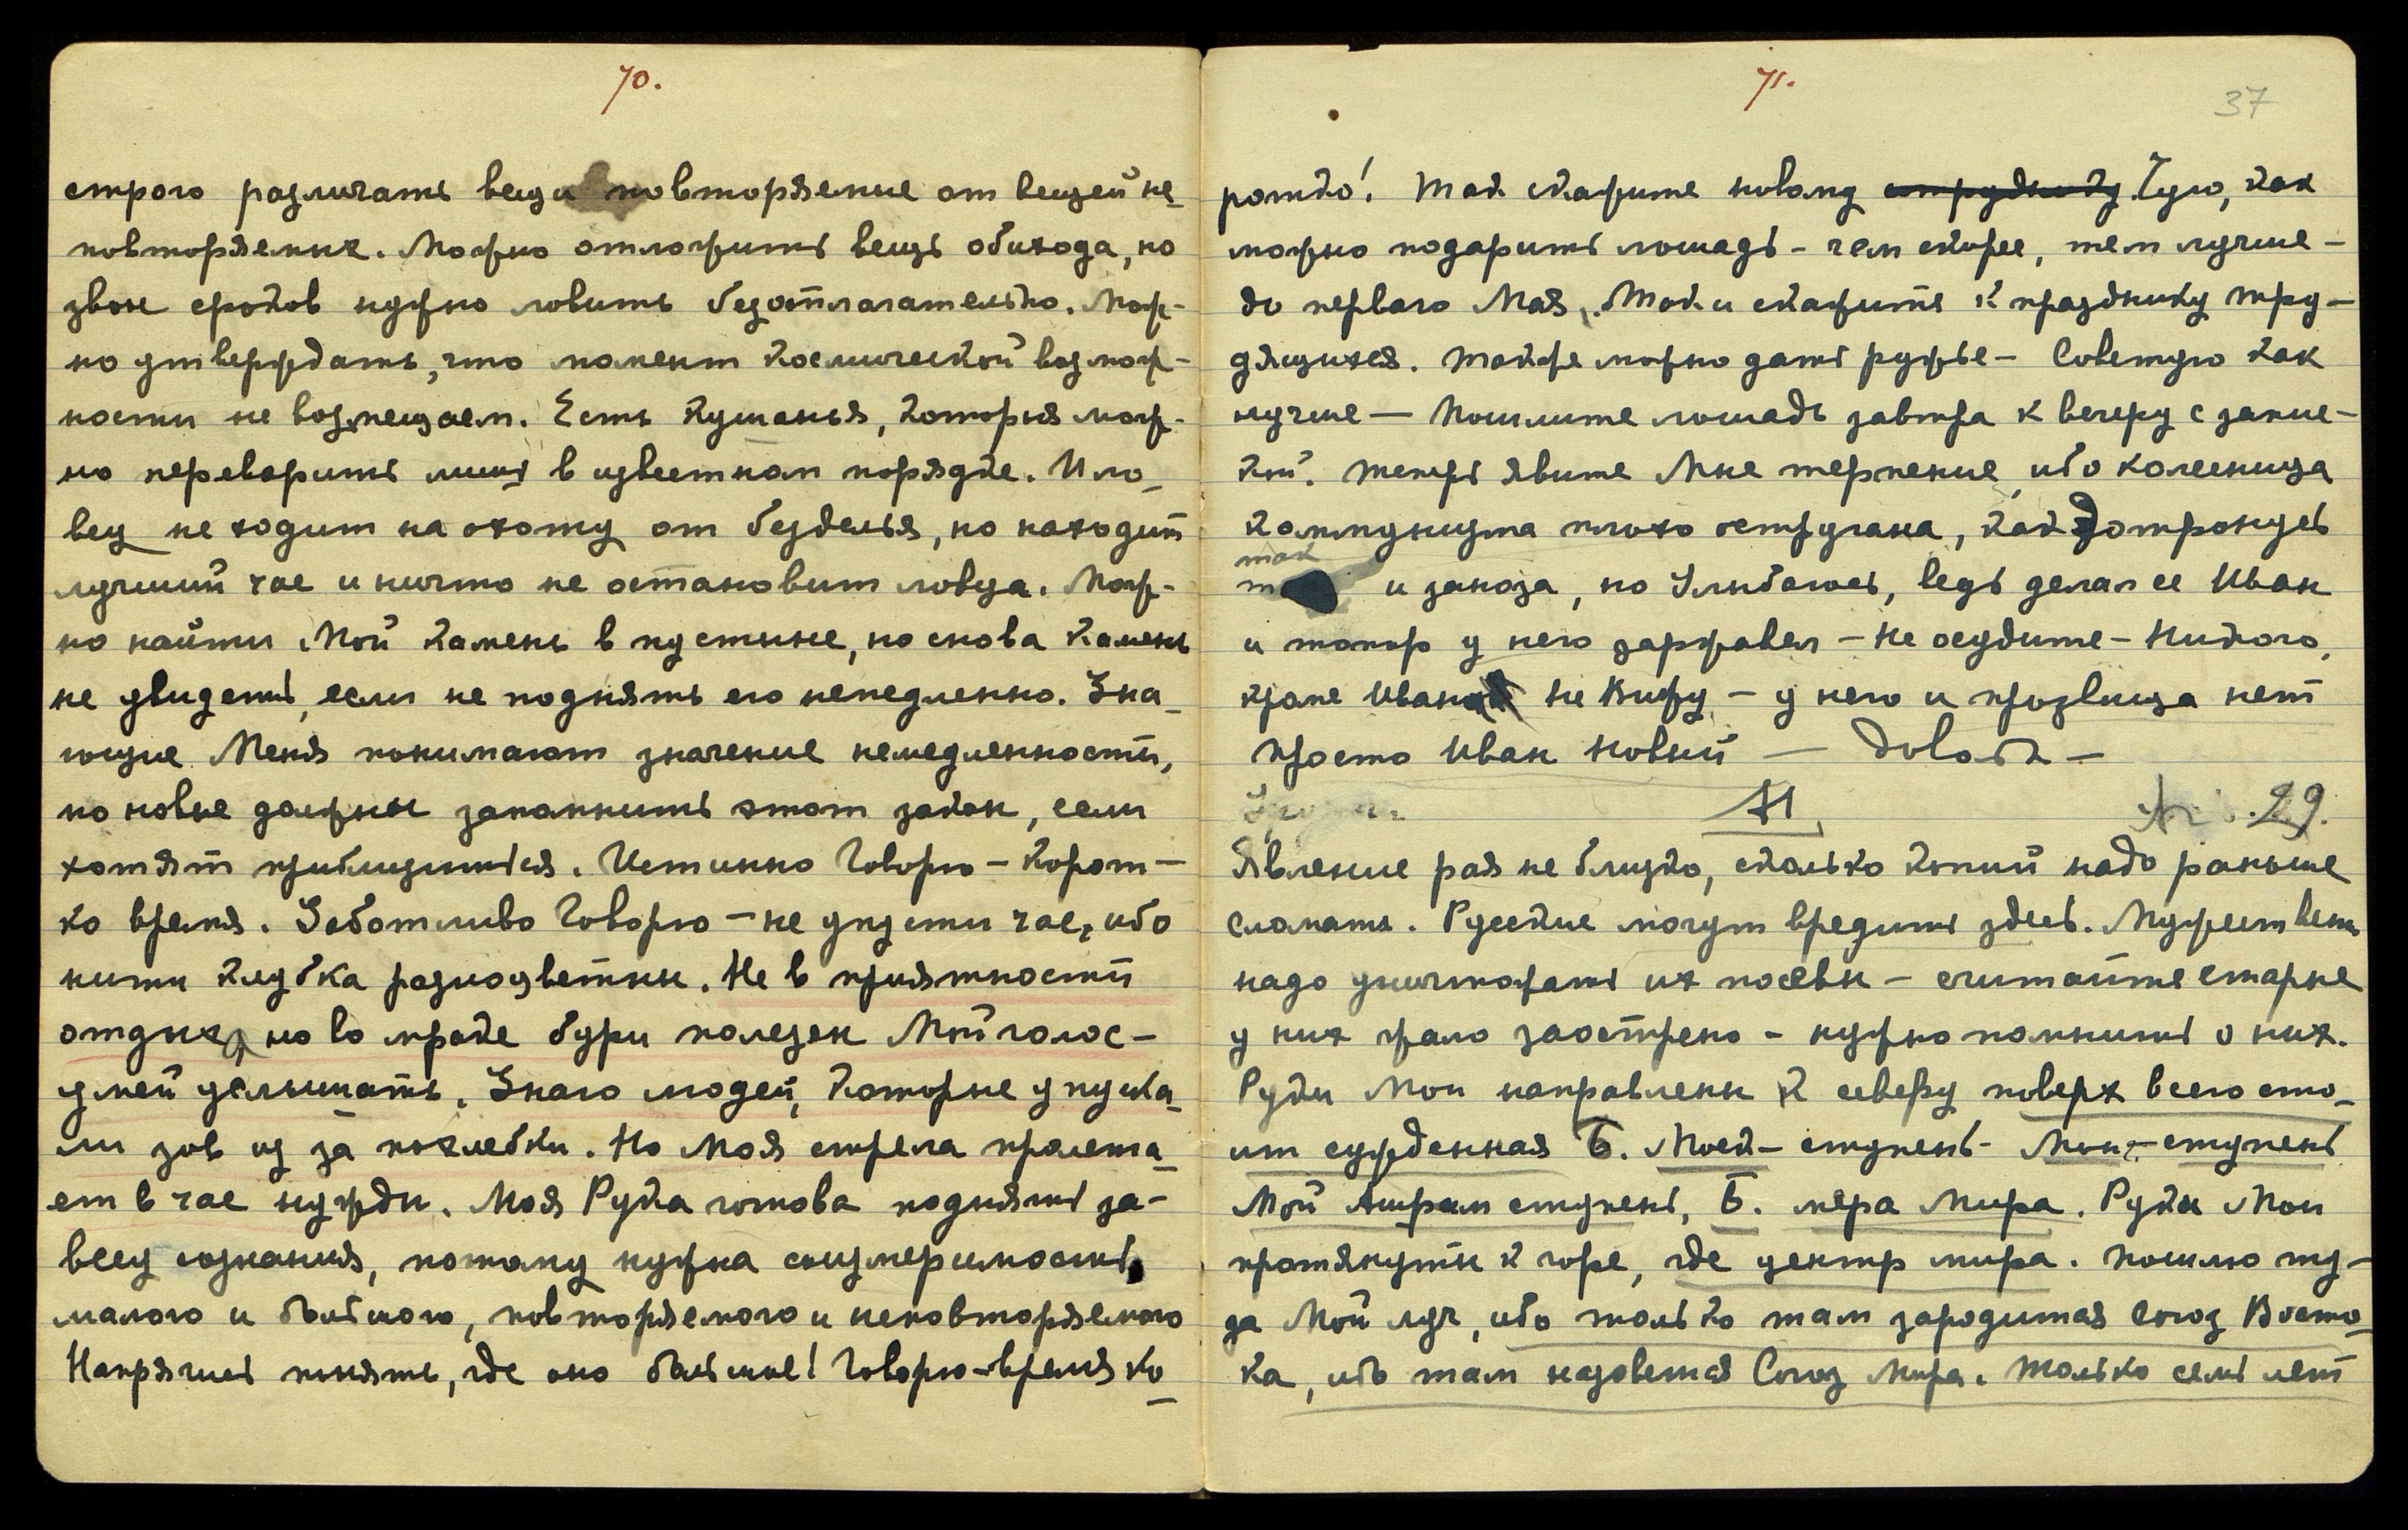 70.
строго различать вещи повторяемые от вещей не
повторяемых. Можно отложить вещь обихода, но
звон сроков нужно ловить безотлагательно. Мож-
но утверждать, что момент космической возмож-
ности не возмещаем. Есть кушанья, которыя мож-
но переварить лишь в известном порядке. И ло_
вец не ходит на охоту от безделья, но находит
лучший час и ничто не остановит ловца. Мож-
но найти Мой камень в пустыне, но снова камень
не увидеть, если не поднять его немедленно. Зна_
ющие Меня понимают значение немедленности,
но новые должны запомнить этот закон, если
хотят приблизиться. Истинно Говорю – корот-
ко время. Заботливо Говорю – не упусти час, ибо
нити клубка разноцветны. Не в приятности
отдыха, но во мраке бури полезен Мой голос –
умей услышать. Знаю людей, которые упуска_
ли зов из за похлебки. Но Моя стрела пролета_
ет в час нужды. Моя Рука готова поднять за-
весу сознания, потому нужна соизмеримость
малого и большого, повторяемого и неповторяемого
Напрягись понять, где оно большое! Говорю – время ко_
71.
37
ротко! Так скажите новому сотруднику Чую, как
можно подарить лошадь – чем скорее, тем лучше –
до перваго Мая. Так и скажите к празднику тру-
дящихся. Также можно дать ружье – Советую как
лучше – Пошлите лошадь завтра к вечеру с запис-
кой. Теперь явите Мне терпение, ибо колесница
коммунизма плохо остругана, как дотронусь
так
и заноза, но Улыбаюсь, ведь делал ее Иван
и топор у него заржавел – не осудите – Никого,
кроме Ивана не Вижу – у него и прозвища нет
просто Иван новый — Довольно –
М
29.
Явление рая не близко, сколько копий надо раньше
сломать. Русские могут вредить здесь. Мужествен
надо уничтожать их посевы – считайте старые
у них жало заострено – нужно помнить о них.
Руки Мои направлены к северу поверх всего сто_
ит сужденная Б. Моей – ступень – Мои – ступень
Мой Ашрам ступень, Б. мера Мира. Руки Мои
протянуты к горе, где центр мира. Пошлю ту-
да Мой луч, ибо только там зародится Союз Восто_
ка, ибо там назовется Союз Мира. Только семь лет